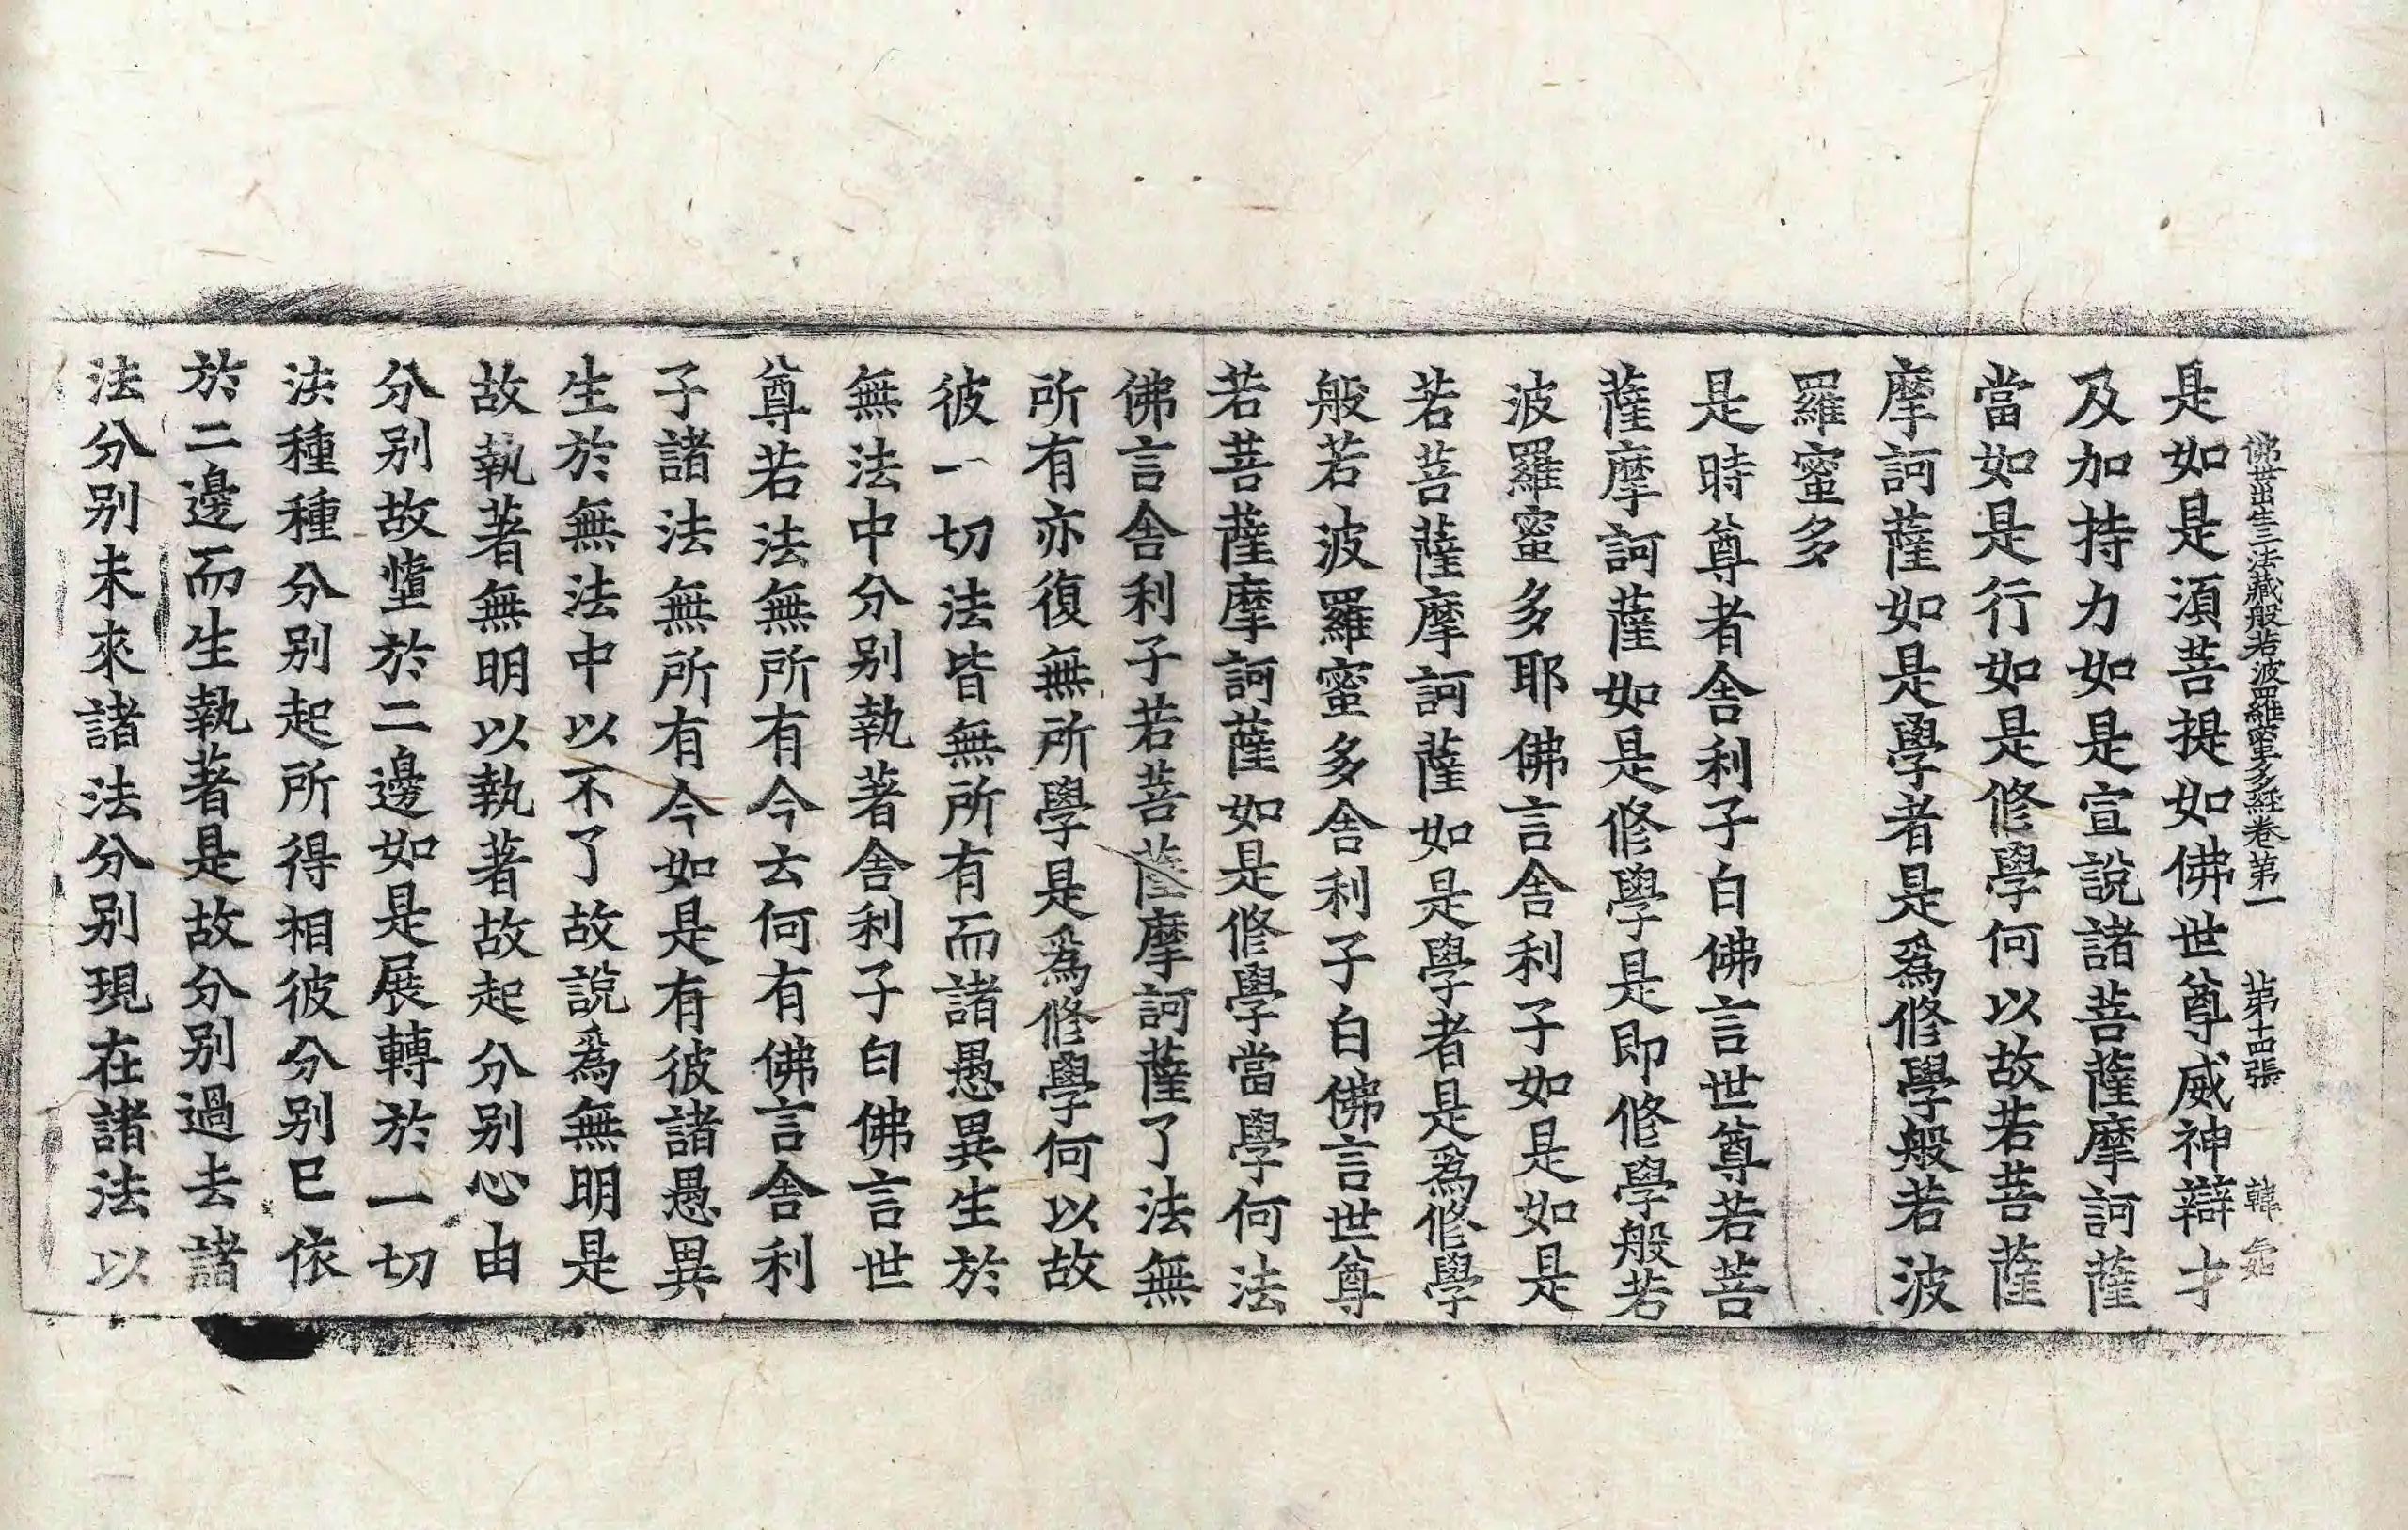 佛母出生三法藏般若波羅蜜多經卷第一 第十四張 韓
是如是湏菩提如佛世尊威神辯才
及加持力如是宣說諸菩薩摩訶薩
當如是行如是修學何以故若菩薩
摩訶薩如是學者是爲修學般若波
羅蜜多
是時尊者舍利子白佛言世尊若菩
薩摩訶薩如是修學是即修學般若
波羅蜜多耶佛言舍利子如是如是
若菩薩摩訶薩如是學者是爲修學
般若波羅蜜多舍利子白佛言世尊
若菩薩摩訶薩如是修學當學何法
佛言舍利子若菩薩摩訶薩了法無
所有亦復無所學是爲修學何以故
彼一切法皆無所有而諸愚異生於
無法中分別執著舍利子白佛言世
尊若法無所有今云何有佛言舍利
子諸法無所有今如是有彼諸愚異
生於無法中以不了故說爲無明是
故執著無明以執著故起分別心由
分別故墮於二邊如是展轉於一切
法種種分別起所得相彼分別已依
於二邊而生執著是故分別過去諸
法分別未來諸法分別現在諸法以